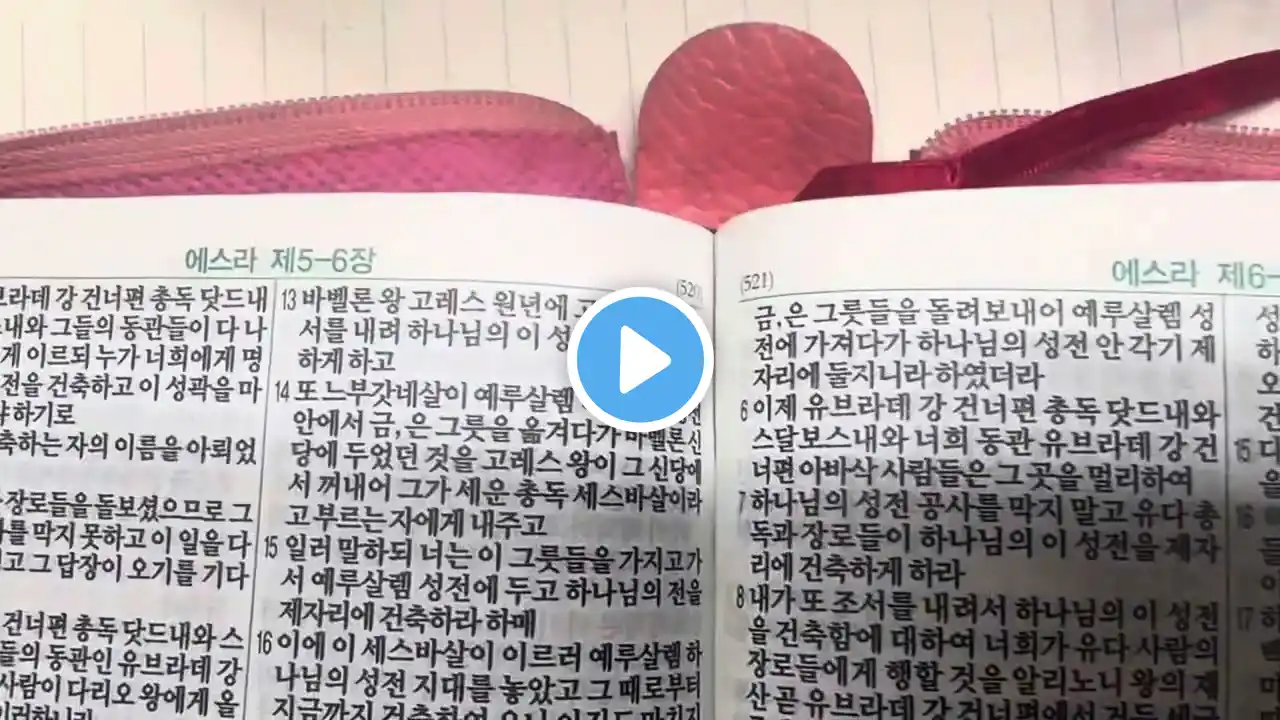 에스라 제5-6장
브라데 강 건너편 총독 닷드내
내와 그들의 동관들이 다 나
게 이르되 누가 너희에게 명
전을 건축하고 이 성곽을 마
하기로
축하는 자의 이름을 아뢰었
장로들을 돌보셨으므로 그
를 막지 못하고 이 일을 다
고 그 답장이 오기를 기다
건너편 총독 닷드내와 스
들의 동관인 유브라데 강
사람이 다리오 왕에게 올
(520)
13 바벨론 왕 고레스 원년에 고
서를 내려 하나님의 이 성
하게 하고
14 또 느부갓네살이 예루살렘
안에서 금, 은 그릇을 옮겨다가 바벨론 신
당에 두었던 것을 고레스 왕이 그 신당에
서 꺼내어 그가 세운 총독 세스바살이라
고 부르는 자에게 내주고
15 일러 말하되 너는 이 그릇들을 가지고 가
서 예루살렘 성전에 두고 하나님의 전을
제자리에 건축하라 하매
16 이에 이 세스바살이 이르러 예루살렘 하
나님의 성전 지대를 놓았고 그 때로부터
지금까지 건축하여 오나
(521)
에스라 제6-
금, 은 그릇들을 돌려보내어 예루살렘 성
전에 가져다가 하나님의 성전 안 각기 제
자리에 둘지니라 하였더라
6 이제 유브라데 강 건너편 총독 닷드내와
스달보스내와 너희 동관 유브라데 강 건
너편 아바삭 사람들은 그 곳을 멀리하여
7 하나님의 성전 공사를 막지 말고 유다 총
독과 장로들이 하나님의 이 성전을 제자
리에 건축하게 하라
8 내가 또 조서를 내려서 하나님의 이 성전
을 건축함에 대하여 너희가 유다 사람의
장로들에게 행할 것을 알리노니 왕의 재
산 곧 유브라데 강 건너편에서
15 다
을
16
들
17